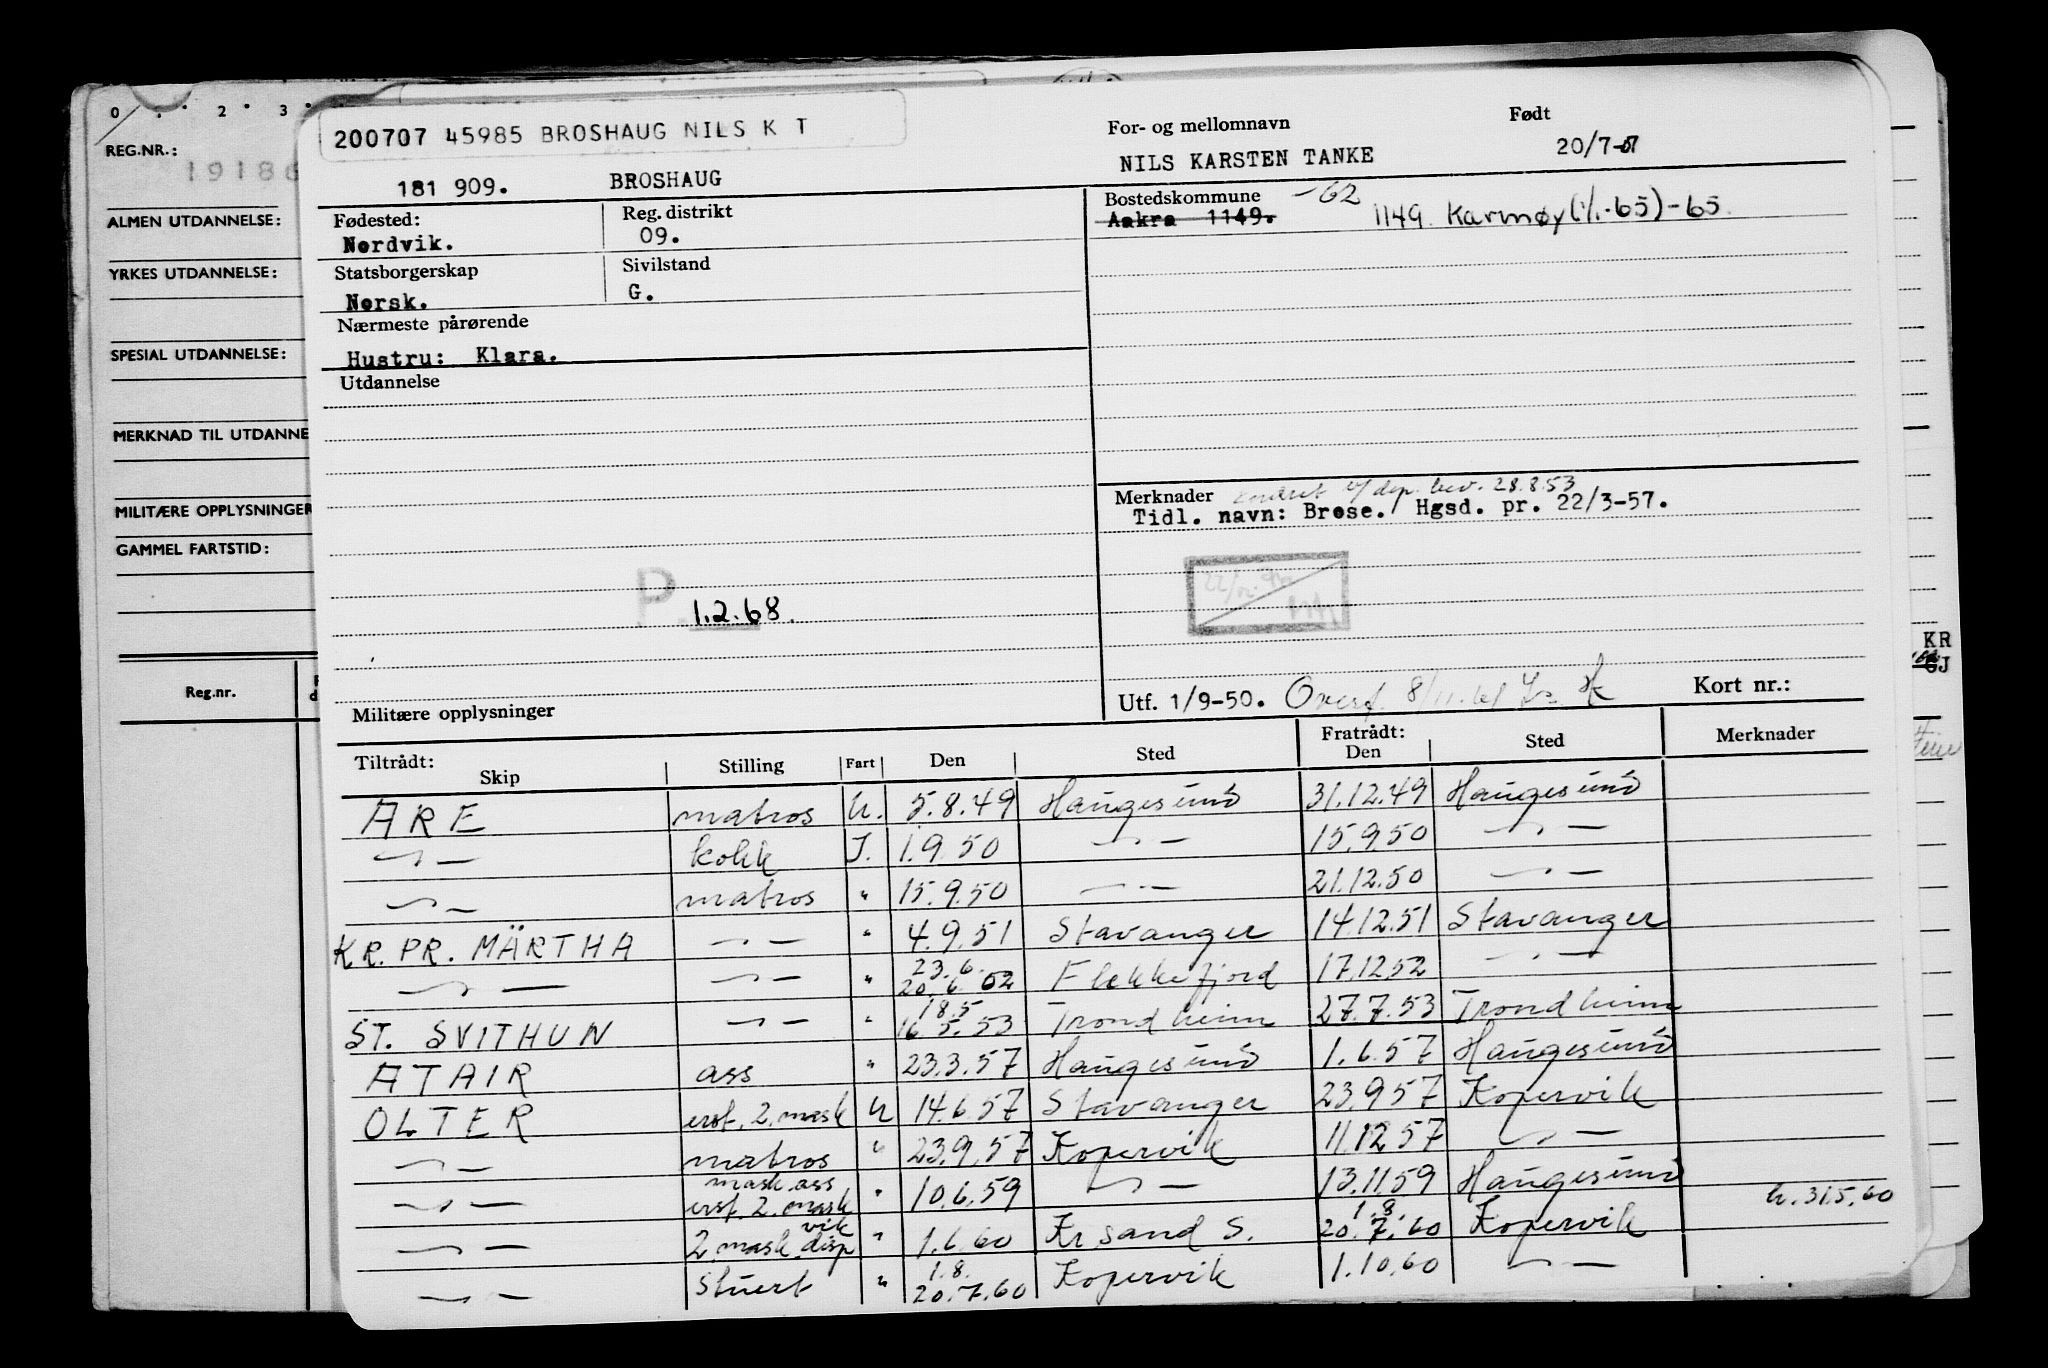 0 . . 2 3 .
REG.NR.:
19186
ALMEN UTDANNELSE:
YRKES UTDANNELSE:
SPESIAL UTDANNELSE:
MERKNAD TIL UTDANNE
MILITÆRE OPPLYSNINGER
GAMMEL FARTSTID:
Reg.nr.
200707 45985 BROSHAUG NILS K T
For- og mellomnavn
Født
181 909. BROSHAUG NILS KARSTEN TANKE 20/7-07
Fødested: Reg. distrikt Bostedskommune -62
Nordvik. 09. Aakra 1149. 1149 Karmøy (1/1-65) -65
Statsborgerskap Sivilstand
Norsk. G.
Nærmeste pårørende
Hustru: Klara.
Utdannelse
Merknader endret v/dep. bev. 28.8.53
Tidl. navn: Brose. Hgsd. pr. 22/3-57.
P. 1.2.68.
Utf. 1/9-50. Overf. 8/11.61 Kort nr.:
Militære opplysninger
Tiltrådt: Fratrådt:
Skip Stilling Fart Den Sted Den Sted Merknader
ARE matros U. 5.8.49 Haugesund 31.12.49 Haugesund
—"— kokk I. 1.9.50 —"— 15.9.50 —"—
—"— matros " 15.9.50 —"— 21.12.50 —"—
KR. PR. MÄRTHA —"— " 4.9.51 Stavanger 14.12.51 Stavanger
—"— —"— " 23.6. 20.6.52 Flekkefjord 17.12.52 —"—
ST. SVITHUN —"— " 18.5 16.5.53 Trondheim 27.7.53 Trondheim
ATAIR ass " 23.3.57 Haugesund 1.6.57 Haugesund
OLTER erst. 2. mask U 14.6.57 Stavanger 23.9.57 Kopervik
—"— matros " 23.9.57 Kopervik 11.12.57 —"—
—"— mask.ass erst. 2. mask " 10.6.59 —"— 13.11.59 Haugesund
—"— 2 mask. vik disp " 1.6.60 Kr.sand S. 1.8. 20.7.60 Kopervik h.31.5.60
—"— Stuert " 1.8. 20.7.60 Kopervik 1.10.60 —"—
KR
GJ